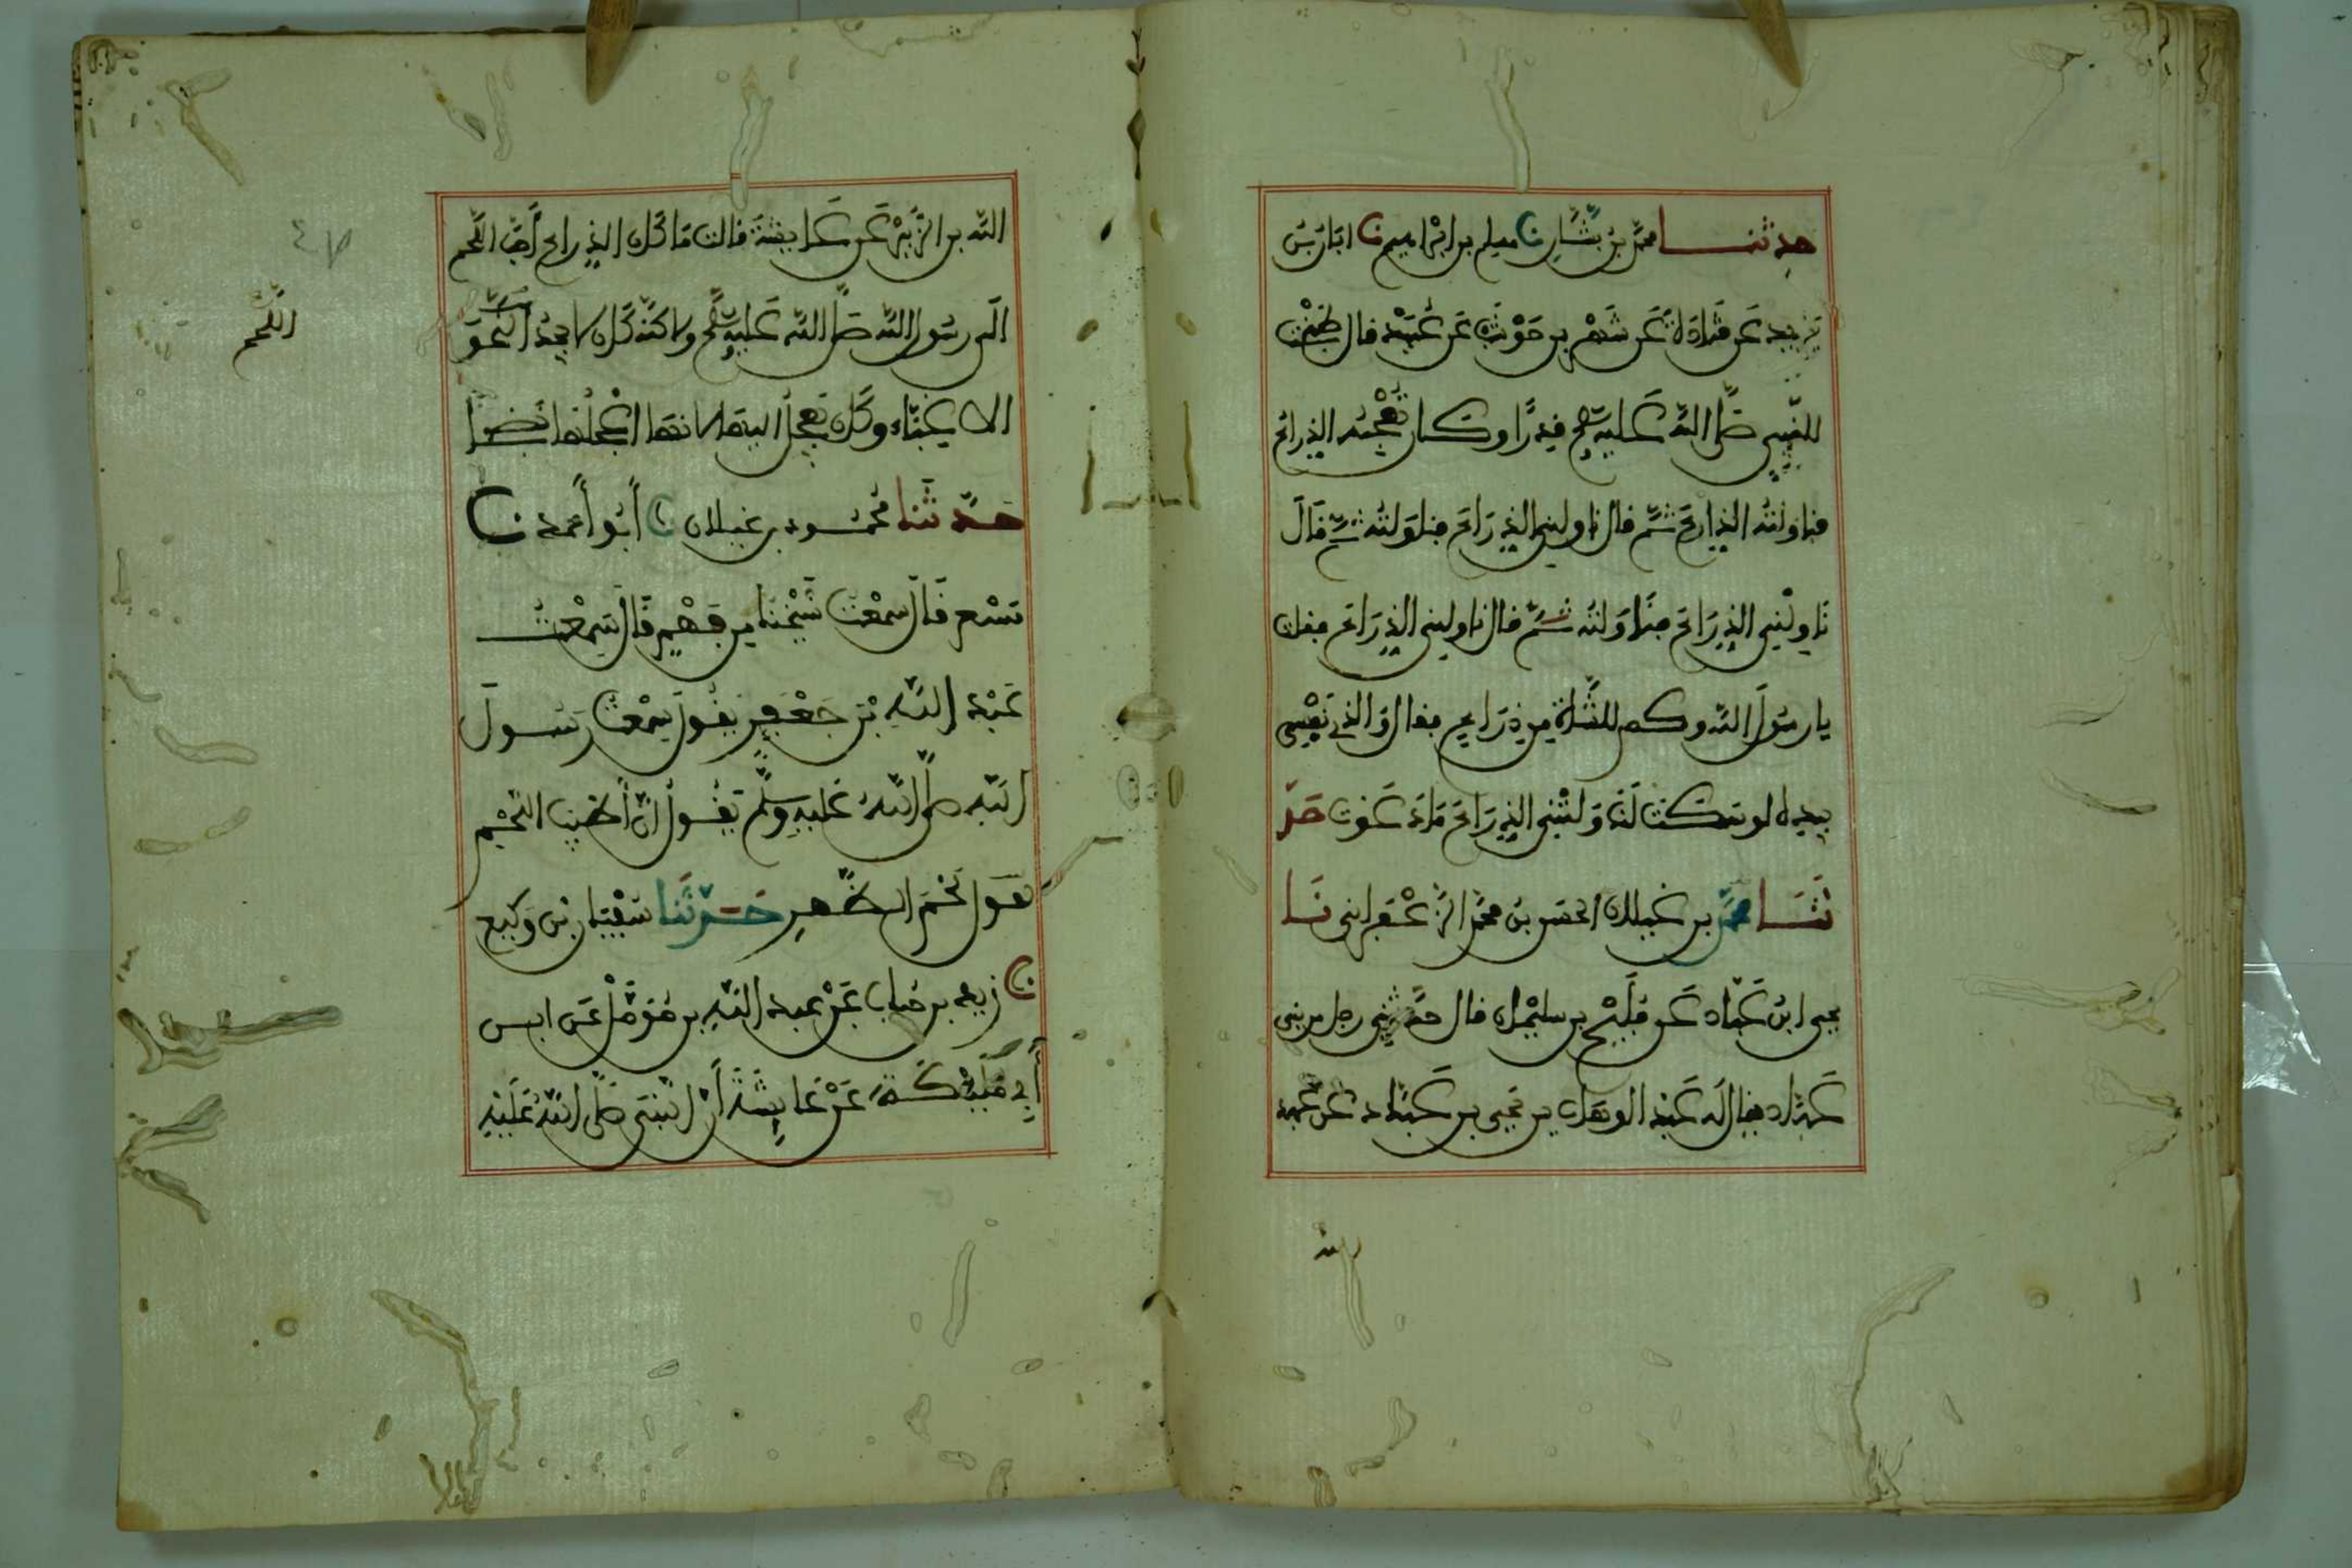 حدثنا محمد بن بشار نا مسلم بن ابراهيم نا ابان بن
يزيد عن قتادة عن شهر بن حوشب عن عبيد قال طبخت
للنبي صلى الله عليه وسلم قدرا وكان يعجبه الذراع
فناولته الذراع ثم قال ناولني الذراع فناولته ثم قال
ناولني الذراع فناولته ثم قال ناولني الذراع فقلت
يا رسول الله وكم للشاة من ذراع فقال والذي نفسي
بيده لو سكت لناولتني الذراع ما دعوت حد
ثنا محمد بن غيلان الحسن بن محمد الزعفراني نا
يحيى ابن عباد عن فليح بن سليمان قال حدثني رجل من بني
عباد يقال له عبد الوهاب بن يحيى بن عباد عن عبد
الله بن الزبير عن عايشة قالت ما كان الذراع أحب اللحم
الى رسول الله صلى الله عليه وسلم ولاكنه كان لا يجد اللحم
الا غبا وكان يعجل اليها لانها اعجلها نضجا
حدثنا محمود بن غيلان نا أبو أحمد نا
مسعر قال سمعت شيخنا من فهم قال سمعت
عبد الله بن جعفر يقول سمعت رسول
الله صلى الله عليه وسلم يقول ان أطيب اللحم
لحم الظهر حدثنا سفيان بن وكيع
نا زيد بن حباب عن عبد الله بن مؤمل عن ابن
أبي مليكة عن عايشة أن النبي صلى الله عليه
اللحم